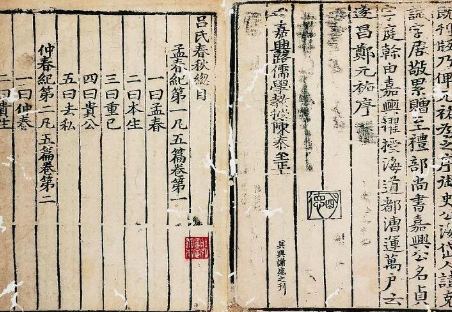 既刊版乃俾元祐為之序公海岱人諱克
誠字居敬累贈至禮部尚書嘉興公名貞
字庭幹由嘉興擢授海道都漕運萬戶云
遂昌鄭元祐序
嘉興路儒學教授陳泰至正
吳興謝盛之刊
呂氏春秋總目
孟春紀第一凡五篇卷第一
一曰孟春
二曰本生
三曰重己
四曰貴公
五曰去私
仲春紀第二凡五篇卷第二
一曰仲春
二曰貴生